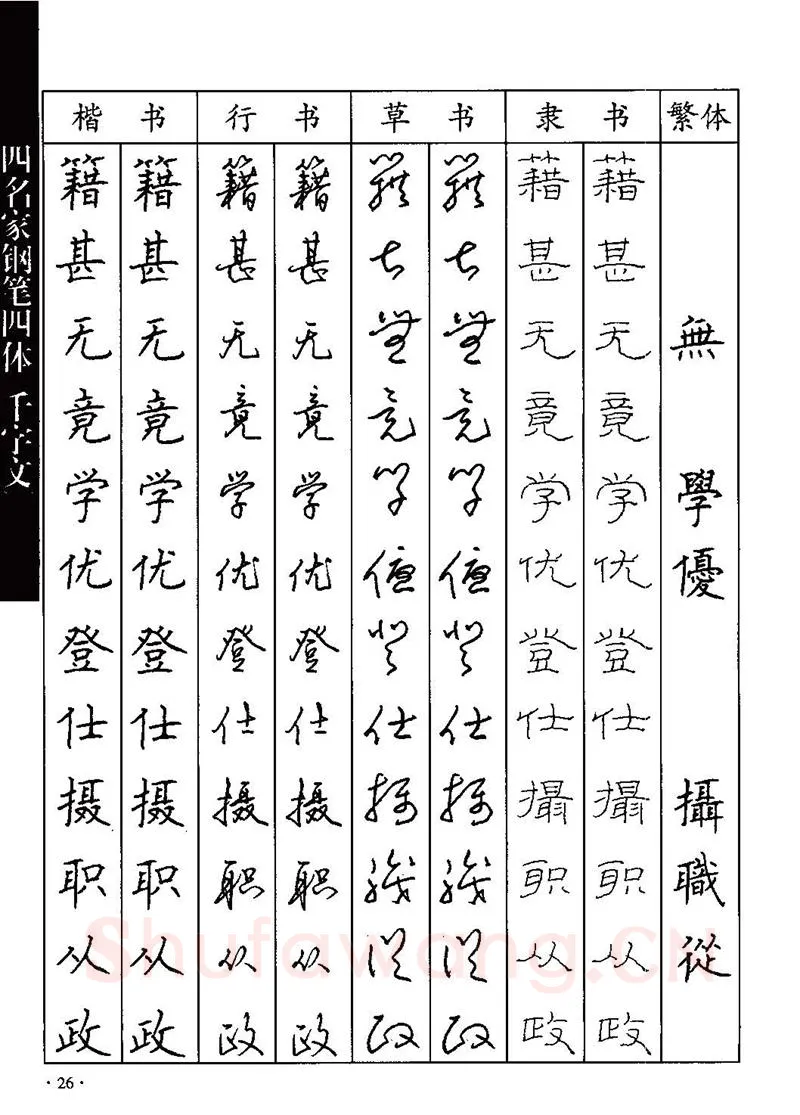 四名家钢笔四体 千字文
楷书 行书 草书 隶书 繁体
籍 籍 籍 籍 籍 籍 籍 籍
甚 甚 甚 甚 甚 甚 甚 甚
无 无 无 无 無 無 无 无 無
竟 竟 竟 竟 竟 竟 竟 竟
学 学 学 学 学 学 学 学 學
优 优 优 优 優 優 优 优 優
登 登 登 登 登 登 登 登
仕 仕 仕 仕 仕 仕 仕 仕
摄 摄 摄 摄 攝 攝 攝 攝 攝
职 职 职 职 職 職 职 职 職
从 从 从 从 從 從 从 从 從
政 政 政 政 政 政 政 政
Shufawang.CN
·26·